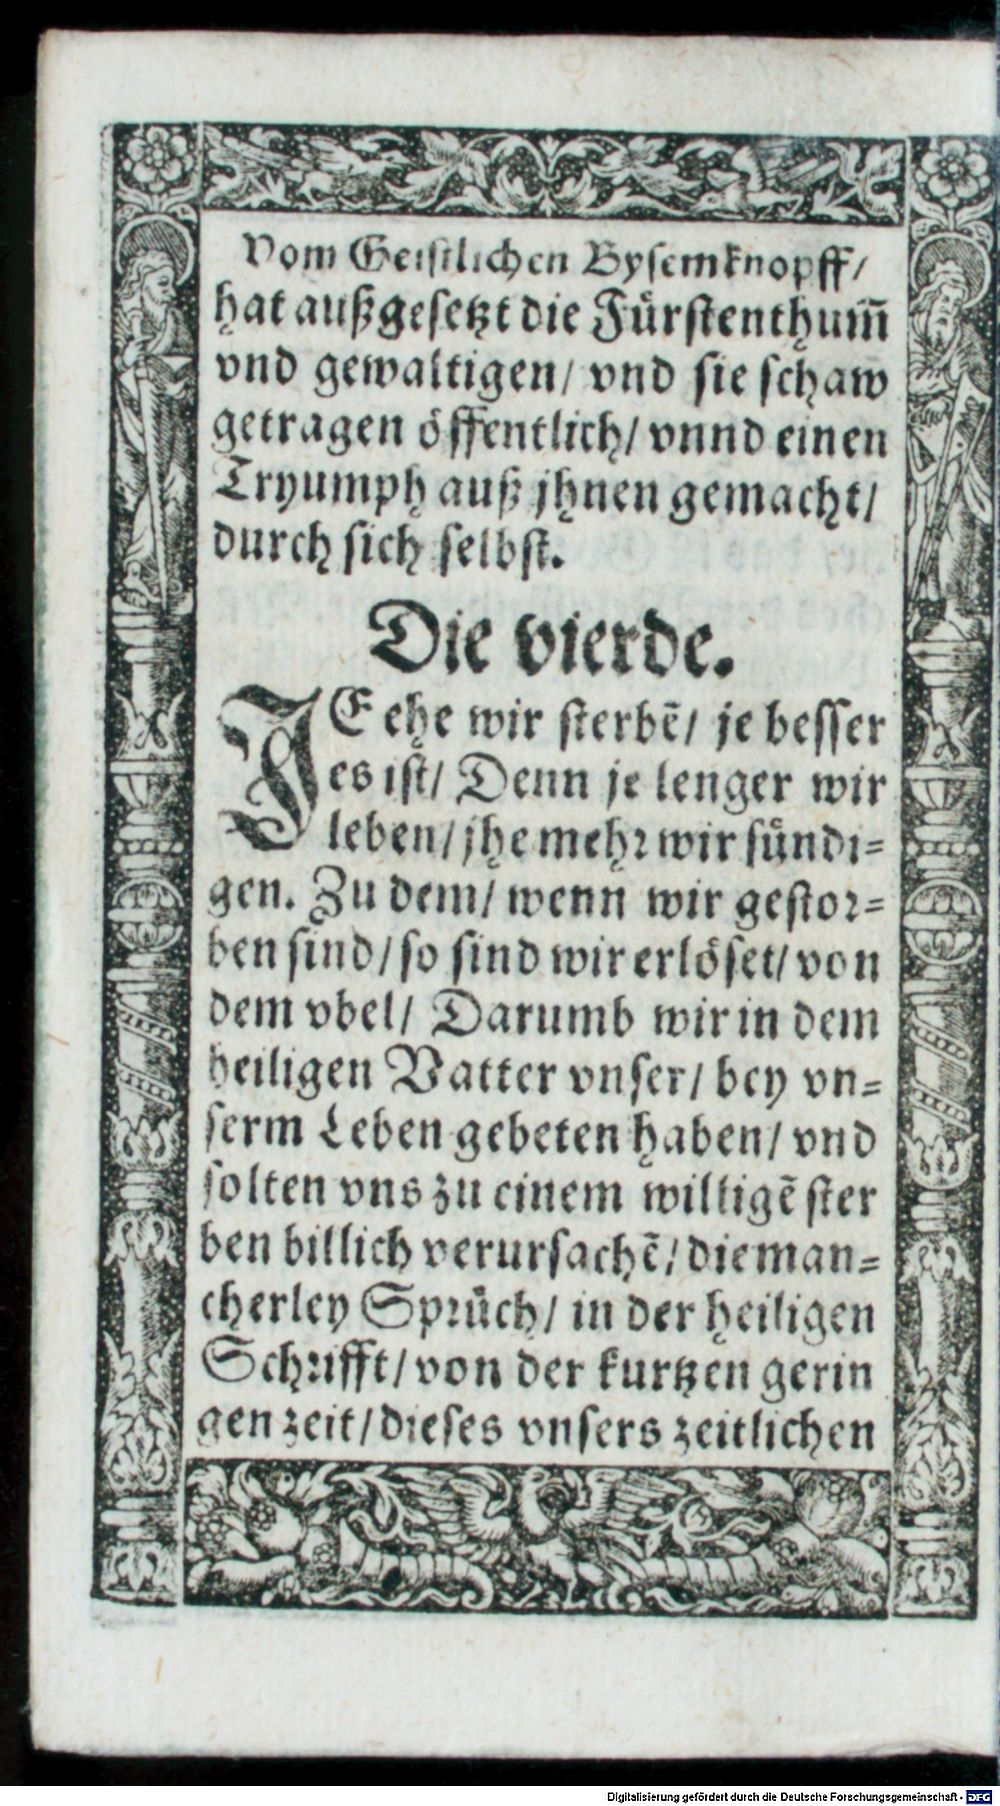 Vom Geistlichen Bysemknopff/
hat außgesetzt die Fürstenthum̄
vnd gewaltigen/ vnd sie schaw
getragen öffentlich/ vnnd einen
Tryumph auß jhnen gemacht/
durch sich selbst.
Die vierde.
JE ehe wir sterbē/ je besser
es ist/ Denn je lenger wir
leben/ jhe mehr wir sündi=
gen. Zu dem/ wenn wir gestor=
ben sind/ so sind wir erlöset/ von
dem vbel/ Darumb wir in dem
heiligen Vatter vnser/ bey vn=
serm Leben gebeten haben/ vnd
solten vns zu einem willigē ster
ben billich verursachē/ die man=
cherley Sprüch/ in der heiligen
Schrifft/ von der kurtzen gerin
gen zeit/ dieses vnsers zeitlichen
Digitalisierung gefördert durch die Deutsche Forschungsgemeinschaft - DFG